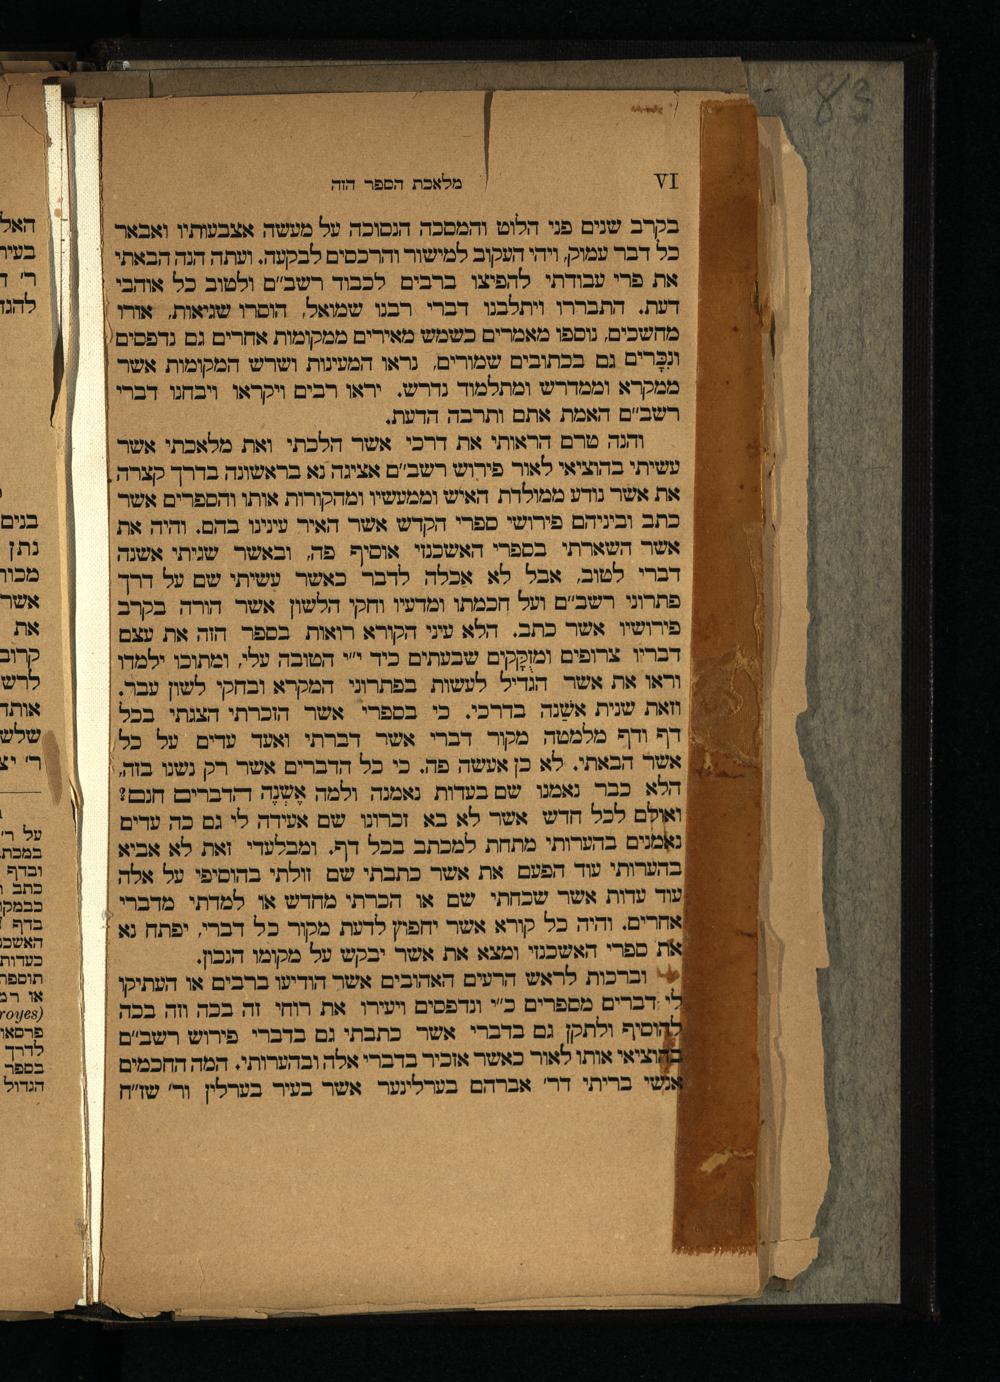 83
VI
מלאכת הספר הזה
בקרב שנים פני הלוט והמסכה הנסוכה על מעשה אצבעותיו ואבאר
כל דבר עמוק, ויהי העקוב למישור והרכסים לבקעה. ועתה הנה הבאתי
את פרי עבודתי להפיצו ברבים לכבוד רשב״ם ולטוב כל אוהבי
דעת. התבררו ויתלבנו דברי רבנו שמואל, הוסרו שגיאות, אורו
מחשכים, נוספו מאמרים כשמש מאירים ממקומות אחרים גם נדפסים
ונִכָּרים גם בכתובים שמורים, נראו המעינות ושרש המקומות אשר
ממקרא וממדרש ומתלמוד נדרש. יראו רבים ויקראו ויבחנו דברי
רשב״ם האמת אתם ותרבה הדעת.
והנה טרם הראותי את דרכי אשר הלכתי ואת מלאכתי אשר
עשיתי בהוציאי לאור פירוש רשב״ם אציגה נא בראשונה בדרך קצרה
את אשר נודע ממולדת האיש וממעשיו ומהקורות אותו והספרים אשר
כתב וביניהם פירושי ספרי הקדש אשר האיר עינינו בהם. והיה את
אשר השארתי בספרי האשכנזי אוסיף פה, ובאשר שניתי אשנה
דברי לטוב, אבל לא אכלה לדבר כאשר עשיתי שם על דרך
פתרוני רשב״ם ועל חכמתו ומדעיו וחקי הלשון אשר הורה בקרב
פירושיו אשר כתב. הלא עיני הקורא רואות בספר הזה את עצם
דבריו צרופים ומזֻקָּקים שבעתים כיד י״י הטובה עלי, ומתוכו ילמדו
וראו את אשר הגדיל לעשות בפתרוני המקרא ובחקי לשון עבר.
וזאת שנית אשַנה בדרכי. כי בספרי אשר הזכרתי הצגתי בכל
דף ודף מלמטה מקור דברי אשר דברתי ואעד עדים על כל
אשר הבאתי. לא כן אעשה פה. כי כל הדברים אשר רק נשנו בזה,
הלא כבר נאמנו שם בעדות נאמנה ולמה אֶשְנֶה הדברים חנם?
ואולם לכל חדש אשר לא בא זכרונו שם אעידה לי גם כה עדים
נאמנים בהערותי מתחת למכתב בכל דף. ומבלעדי זאת לא אביא
בהערותי עוד הפעם את אשר כתבתי שם זולתי בהוסיפי על אלה
עוד עדות אשר שכחתי שם או הכרתי מחדש או למדתי מדברי
אחרים. והיה כל קורא אשר יחפוץ לדעת מקור כל דברי, יפתח נא
את ספרי האשכנזי ומצא את אשר יבקש על מקומו הנכון.
וברכות לראש הרעים האהובים אשר הודיעו ברבים או העתיקו
לי דברים מספרים כ״י ונדפסים ויעירו את רוחי זה בכה וזה בכה
להוסיף ולתקן גם בדברי אשר כתבתי גם בדברי פירוש רשב״ם
בהוציאי אותו לאור כאשר אזכיר בדברי אלה ובהערותי. המה החכמים
אנשי בריתי דר׳ אברהם בערלינער אשר בעיר בערלין ור׳ שז״ח